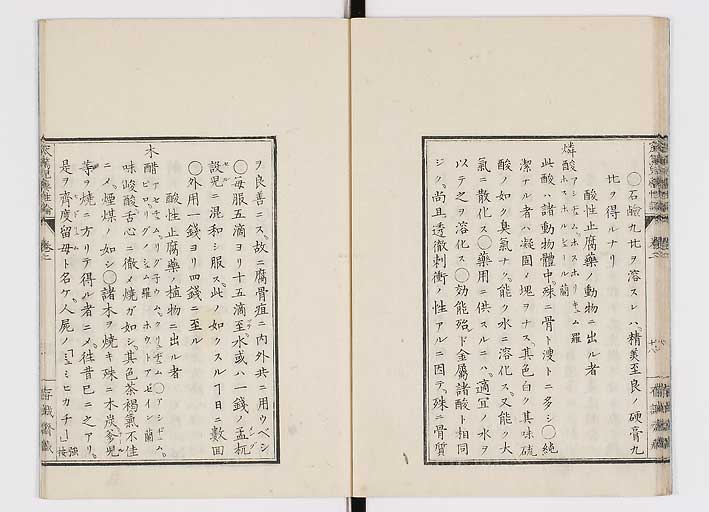 〇石鹼九比ヲ溶スレハ、精美至良ノ硬膏九
比ヲ得ルナリ
酸性止腐藥ノ動物ニ出ル者
燐酸 アシデュム、ホスホリキュム 羅 ホスホルシュール 蘭
此酸ハ諸動物體中、殊ニ骨ト溲トニ多シ〇純
潔ナル者ハ凝固ノ塊ヲナス、其色白ク其味硫
酸ノ如ク臭氣ナク、能ク水ニ溶化ス、又能ク大
氣ニ散化ス〇藥用ニ供スルニハ、適宜ノ水ヲ
以テ之ヲ溶化ス〇効能殆ド金屬諸酸ト相同
ジク、尚且透徹刺衝ノ性アルニ因テ、殊ニ骨質
ヲ良善ニス、故ニ腐骨疽ニ内外共ニ用ウベシ
〇每服五滴ヨリ十五滴至、水或ハ一錢ノ
設兒ニ混和シ服ス、此ノ如クスルヿ日ニ數回
〇外用一錢ヨリ四錢ニ至ル
酸性止腐藥ノ植物ニ出ル者
木醋
味峻酸舌心ニ徹メ燒ガ如シ、其色茶褐氣不佳
ニメ煙煤ノ如シ〇諸木ヲ燒キ殊ニ木炭
等ヲ燒ニ方リテ得ル者ニメ、往昔已ニ之アリ、
是ヲ齊度留母ト名ケ、人屍ノ